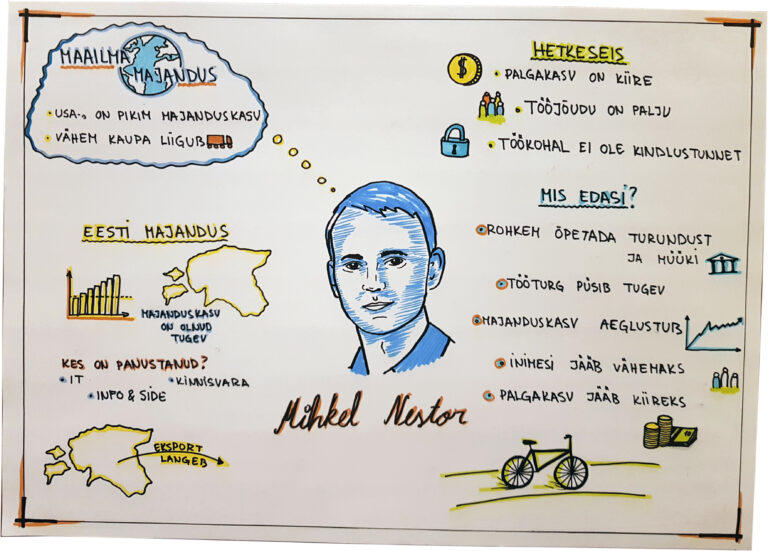 MAAILMA
MAJANDUS
• USA-s ON PIKIM MAJANDUSKASU
• VÄHEM KAUPA LIIGUB
HETKESEIS
• PALGAKASV ON KIIRE
• TÖÖJÕUDU ON PALJU
• TÖÖKOHAL EI OLE KINDLUSTUNNET
MIS EDASI?
ROHKEM ÕPETADA TURUNDUST
JA MÜÜKI
TÖÖTURG PÜSIB TUGEV
MAJANDUSKASV AEGLUSTUB
INIMESI JÄÄB VÄHEMAKS
PALGAKASV JÄÄB KIIREKS
EESTI MAJANDUS
MAJANDUSKASU
ON OLNUD
TUGEV
KES ON PANUSTANUD?
• IT
• KINNISVARA
• INFO & SIDE
EKSPORT
LANGEB
Mihkel Nestor